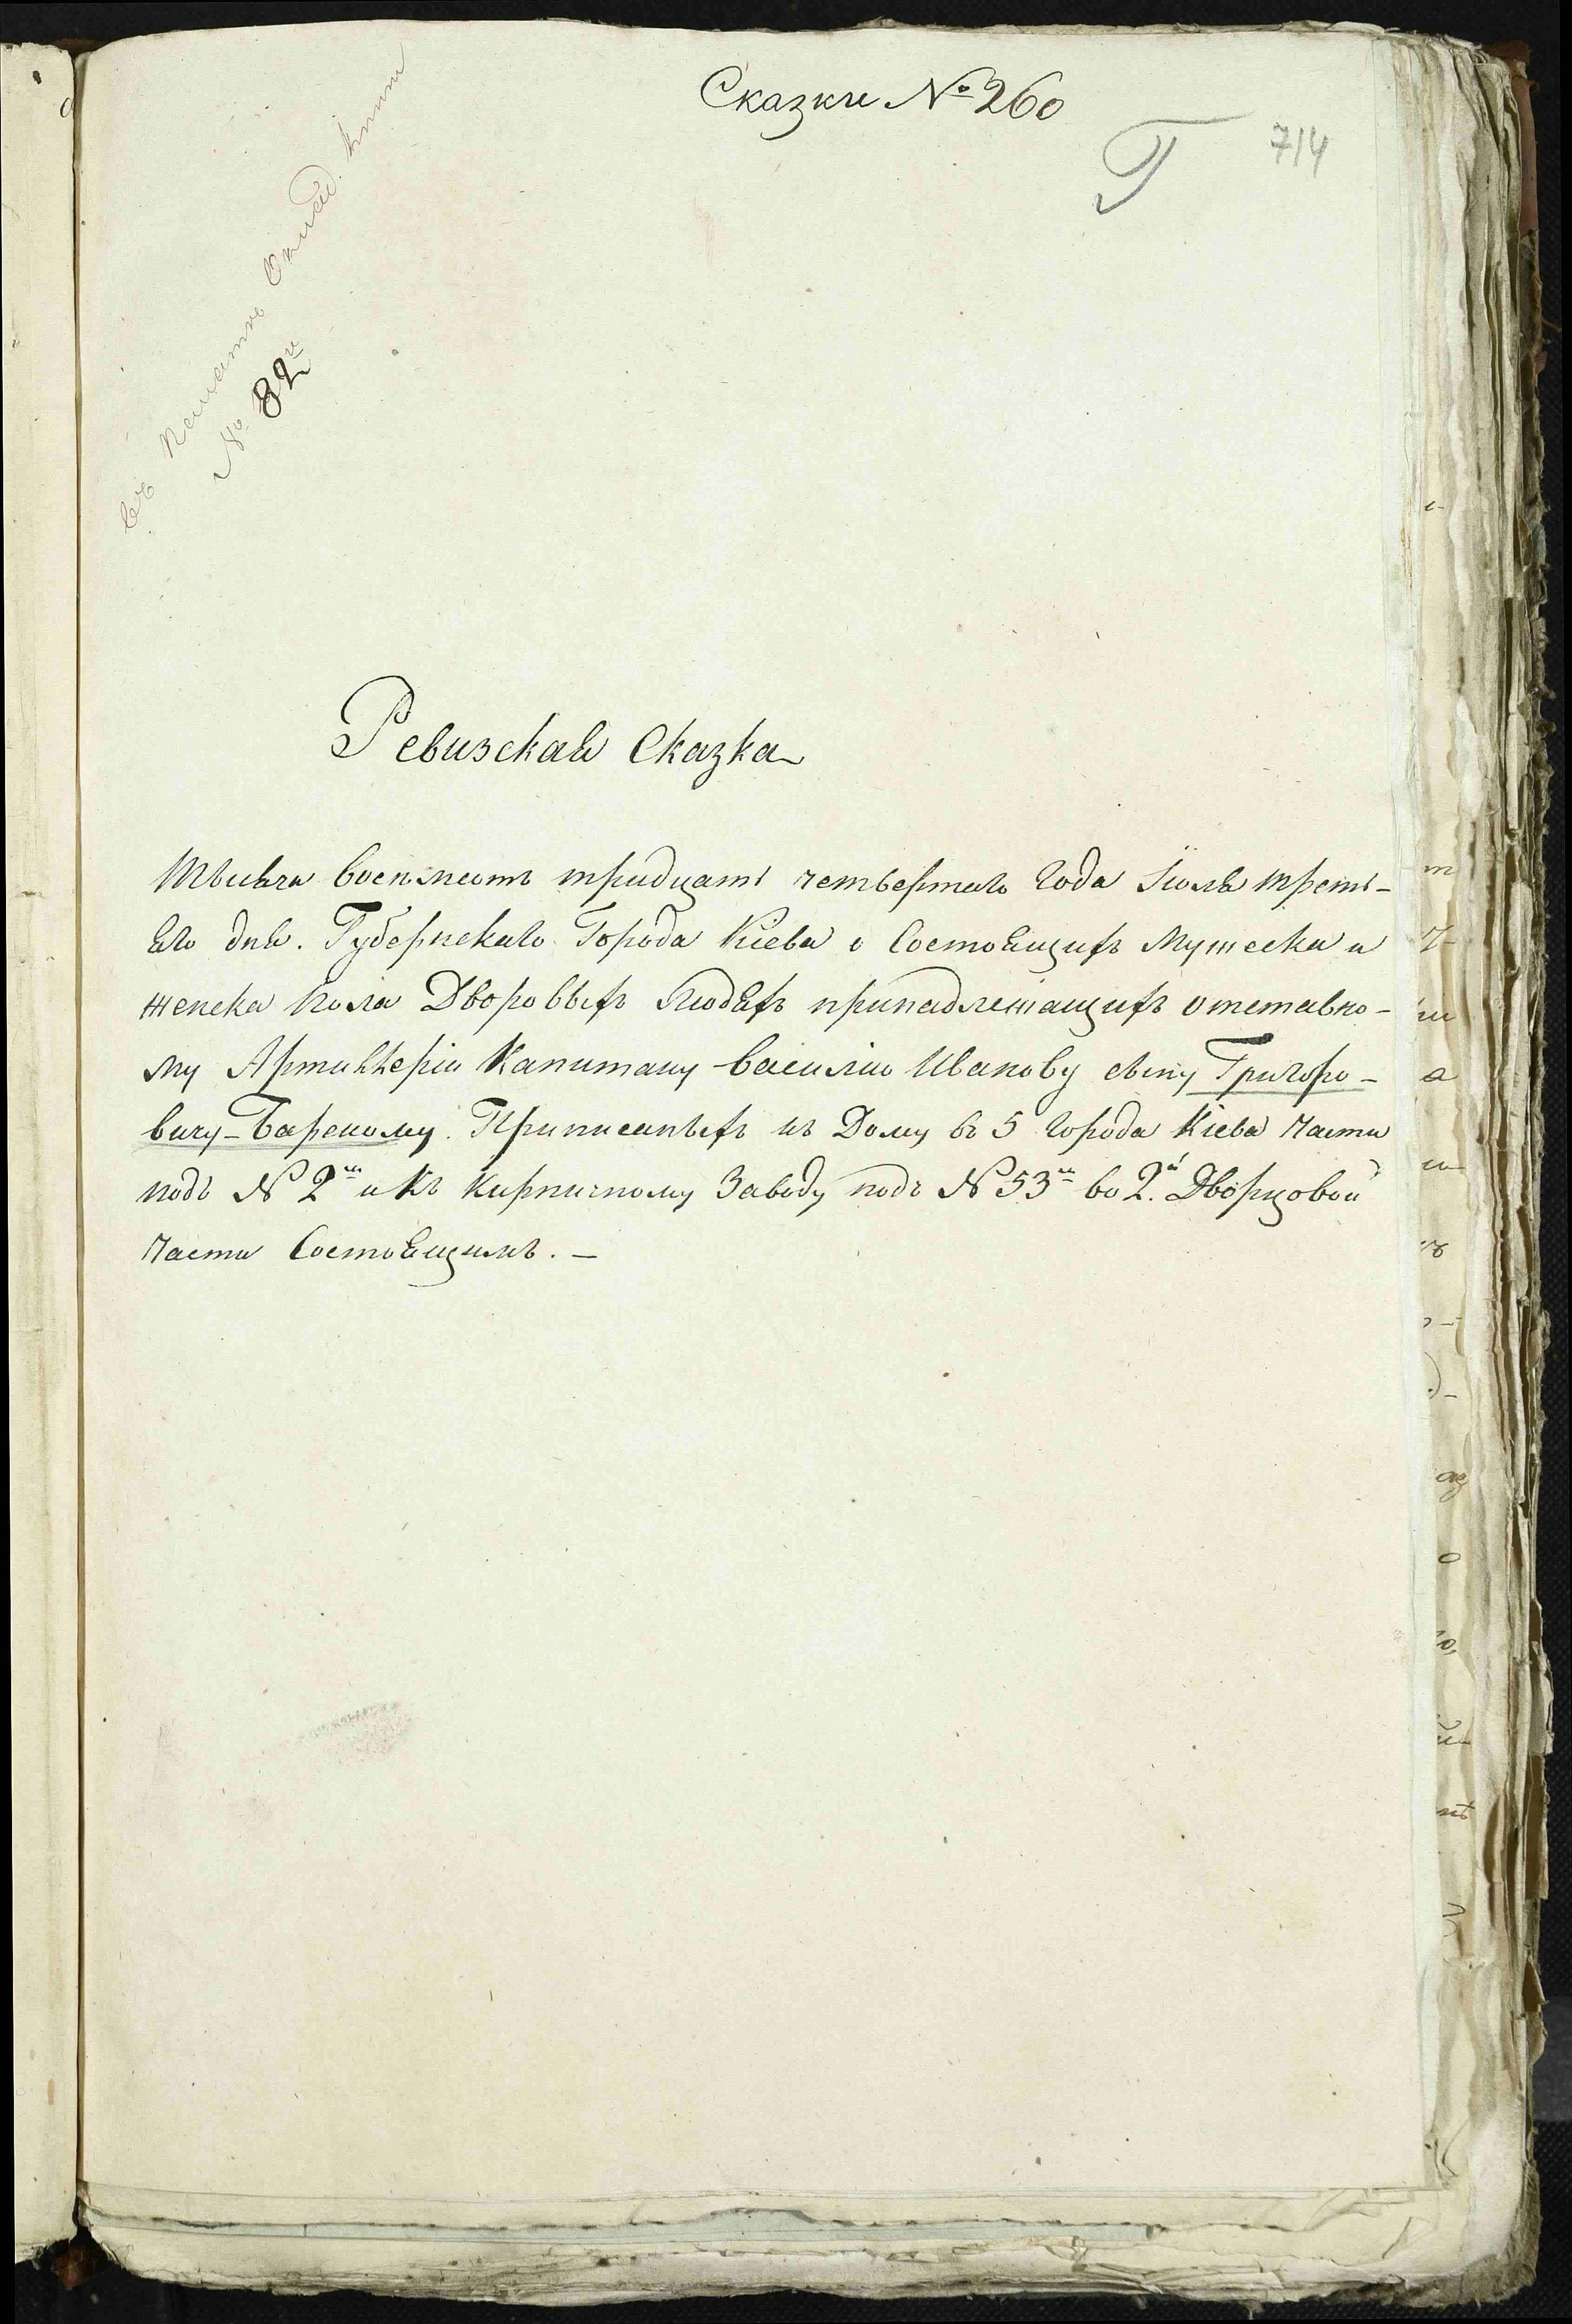 Сказки № 260
Г 714
№ 82й
Ревизская Сказка
Тысяча восемьсотъ тридцать четвертаго Года Іюля треть-
яго дня. Губернскаго Города Кіева о Состоящихъ Мужеска и
женска пола Дворовыхъ Людяхъ принадлежащихъ отставно-
му Артиллеріи Капитану Василію Иванову сыну Григоро-
вичу-Барскому. Приписаныхъ къ Дому въ 5 Города Кіева Части
подъ № 2м и къ Кирпичному Заводу подъ № 53м во 2й. Дворцовой
Части Состоящимъ. —